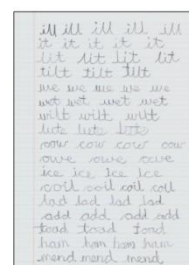 ill ill ill ill ill
it it it it it
lit lit lit lit
tilt tilt tilt
we we we we we
wet wet wet wet
wilt wilt wilt
lute lute lute
cow cow cow
owe owe owe
ice ice ice ice
coil coil coil coil
lad lad lad lad
add add add add
toad toad toad
ham ham ham ham
mend mend mend